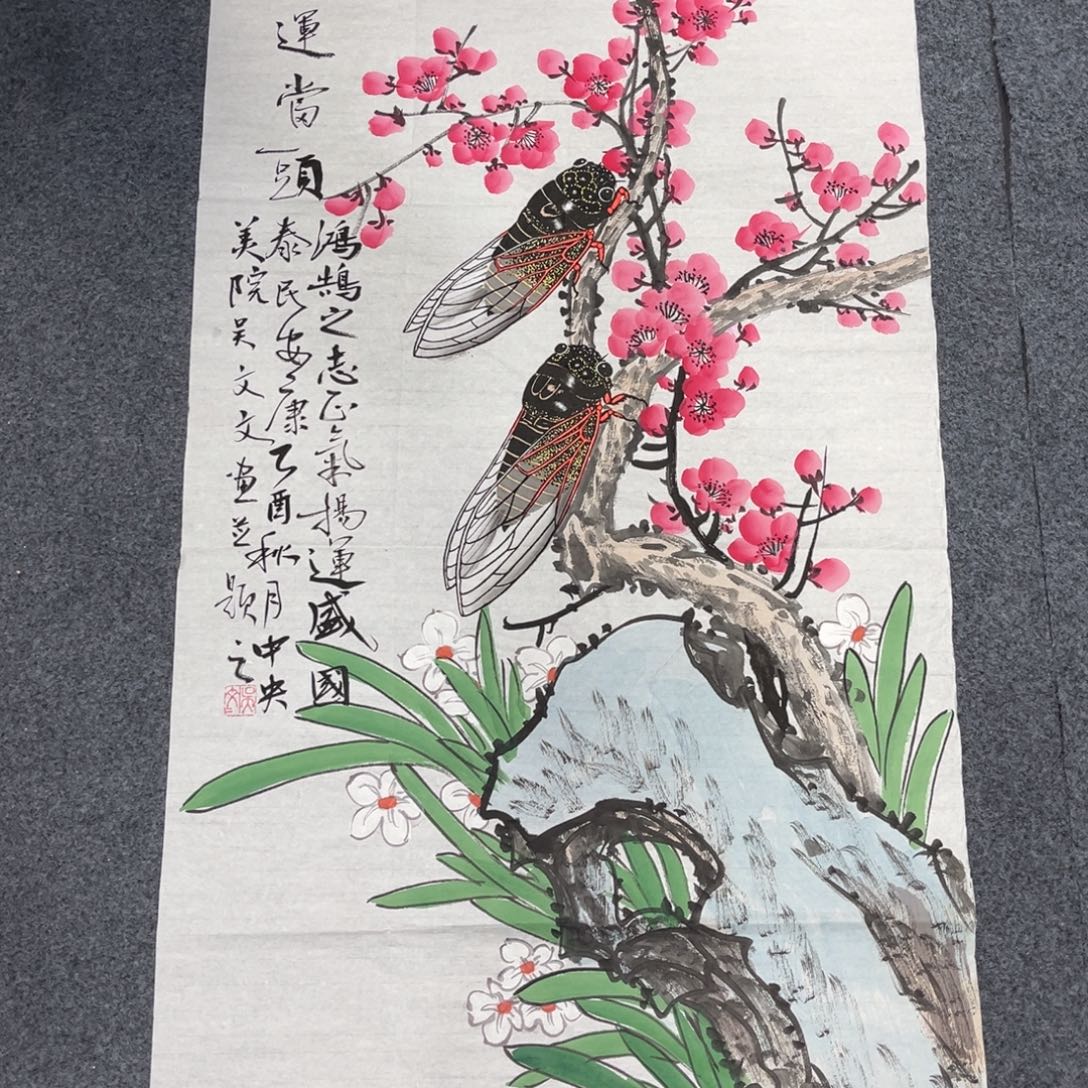 運當頭
鴻鵠之志正氣揚運盛國
泰民安康乙酉秋月中央
美院吴文文畫并題之